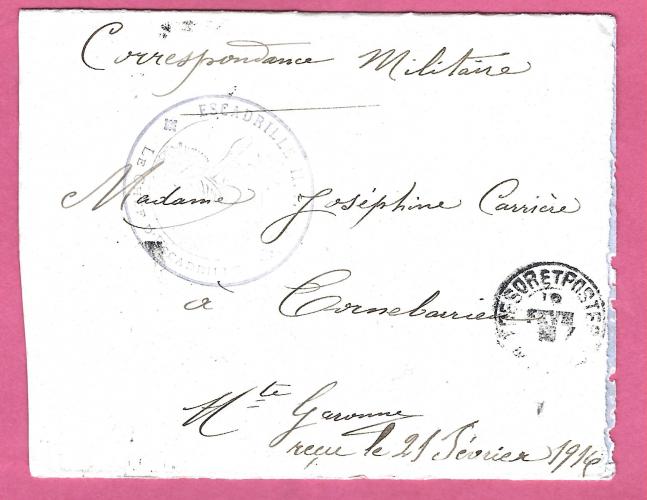 Correspondance Militaire
ESCADRILLE
LE
D'ESCADRILLE
Madame Joséphine Carrière
à Cornebarrieu
TRESOR ET POSTES
Hte Garonne
reçu le 21 Février 1916